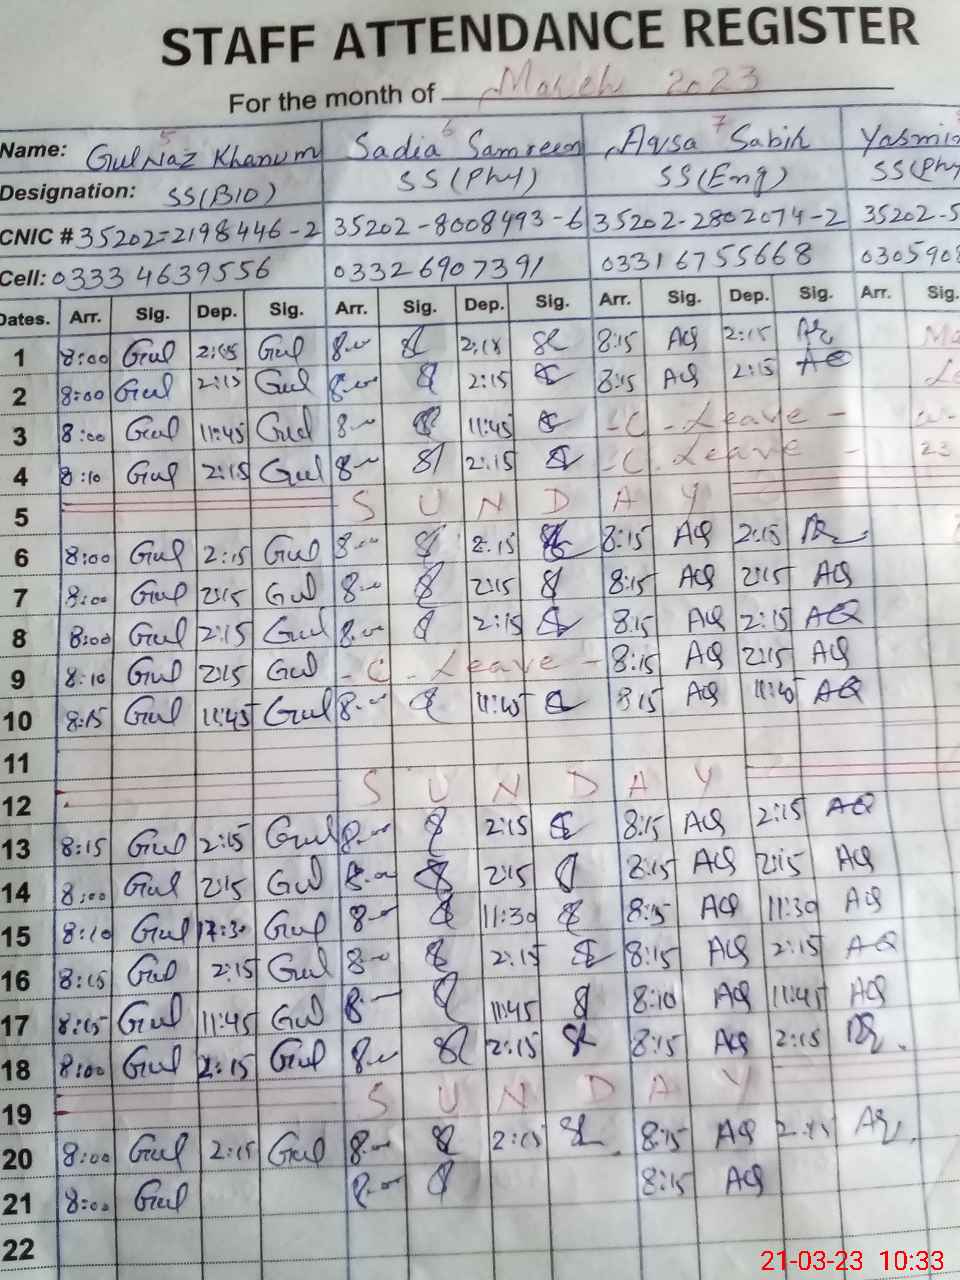 STAFF ATTENDANCE REGISTER
For the month of March 2023
5 6 7
Name: Gulnaz Khanum Sadia Samreen Aqsa Sabih Yasmin
Designation: SS(BIO) SS(Phy) SS(Eng) SS(Phy
CNIC # 35202-2198446-2 35202-8008493-6 35202-2802074-2 35202-5
Cell: 03334639556 03326907391 03316755668 0305908
Dates. Arr. Sig. Dep. Sig. Arr. Sig. Dep. Sig. Arr. Sig. Dep. Sig. Arr. Sig.
1 8:00 Gul 2:15 Gul 8:00 2:15 8:15 AQ 2:15
2 8:00 Gul 2:15 Gul 8:00 2:15 8:15 AQ 2:15 AQ
3 8:00 Gul 11:45 Gul 8:00 11:45 - C. Leave -
4 8:10 Gul 2:15 Gul 8:00 2:15 - C. Leave - 23
5 S U N D A Y
6 8:00 Gul 2:15 Gul 8:00 2:15 8:15 AQ 2:15
7 8:00 Gul 2:15 Gul 8:00 2:15 8:15 AQ 2:15 AQ
8 8:00 Gul 2:15 Gul 8:00 2:15 8:15 AQ 2:15 AQ
9 8:10 Gul 2:15 Gul - C. Leave - 8:15 AQ 2:15 AQ
10 8:15 Gul 11:45 Gul 8:00 11:45 8:15 AQ 11:45 AQ
11
12 S U N D A Y
13 8:15 Gul 2:15 Gul 8:00 2:15 8:15 AQ 2:15 AQ
14 8:00 Gul 2:15 Gul 8:00 2:15 8:15 AQ 2:15 AQ
15 8:10 Gul 11:30 Gul 8:00 11:30 8:15 AQ 11:30 AQ
16 8:15 Gul 2:15 Gul 8:00 2:15 8:15 AQ 2:15 AQ
17 8:15 Gul 11:45 Gul 8:00 11:45 8:10 AQ 11:45 AQ
18 8:00 Gul 2:15 Gul 8:00 2:15 8:15 AQ 2:15
19 S U N D A Y
20 8:00 Gul 2:15 Gul 8:00 2:15 8:15 AQ 2:15
21 8:00 Gul 8:00 8:15 AQ
22
21-03-23 10:33